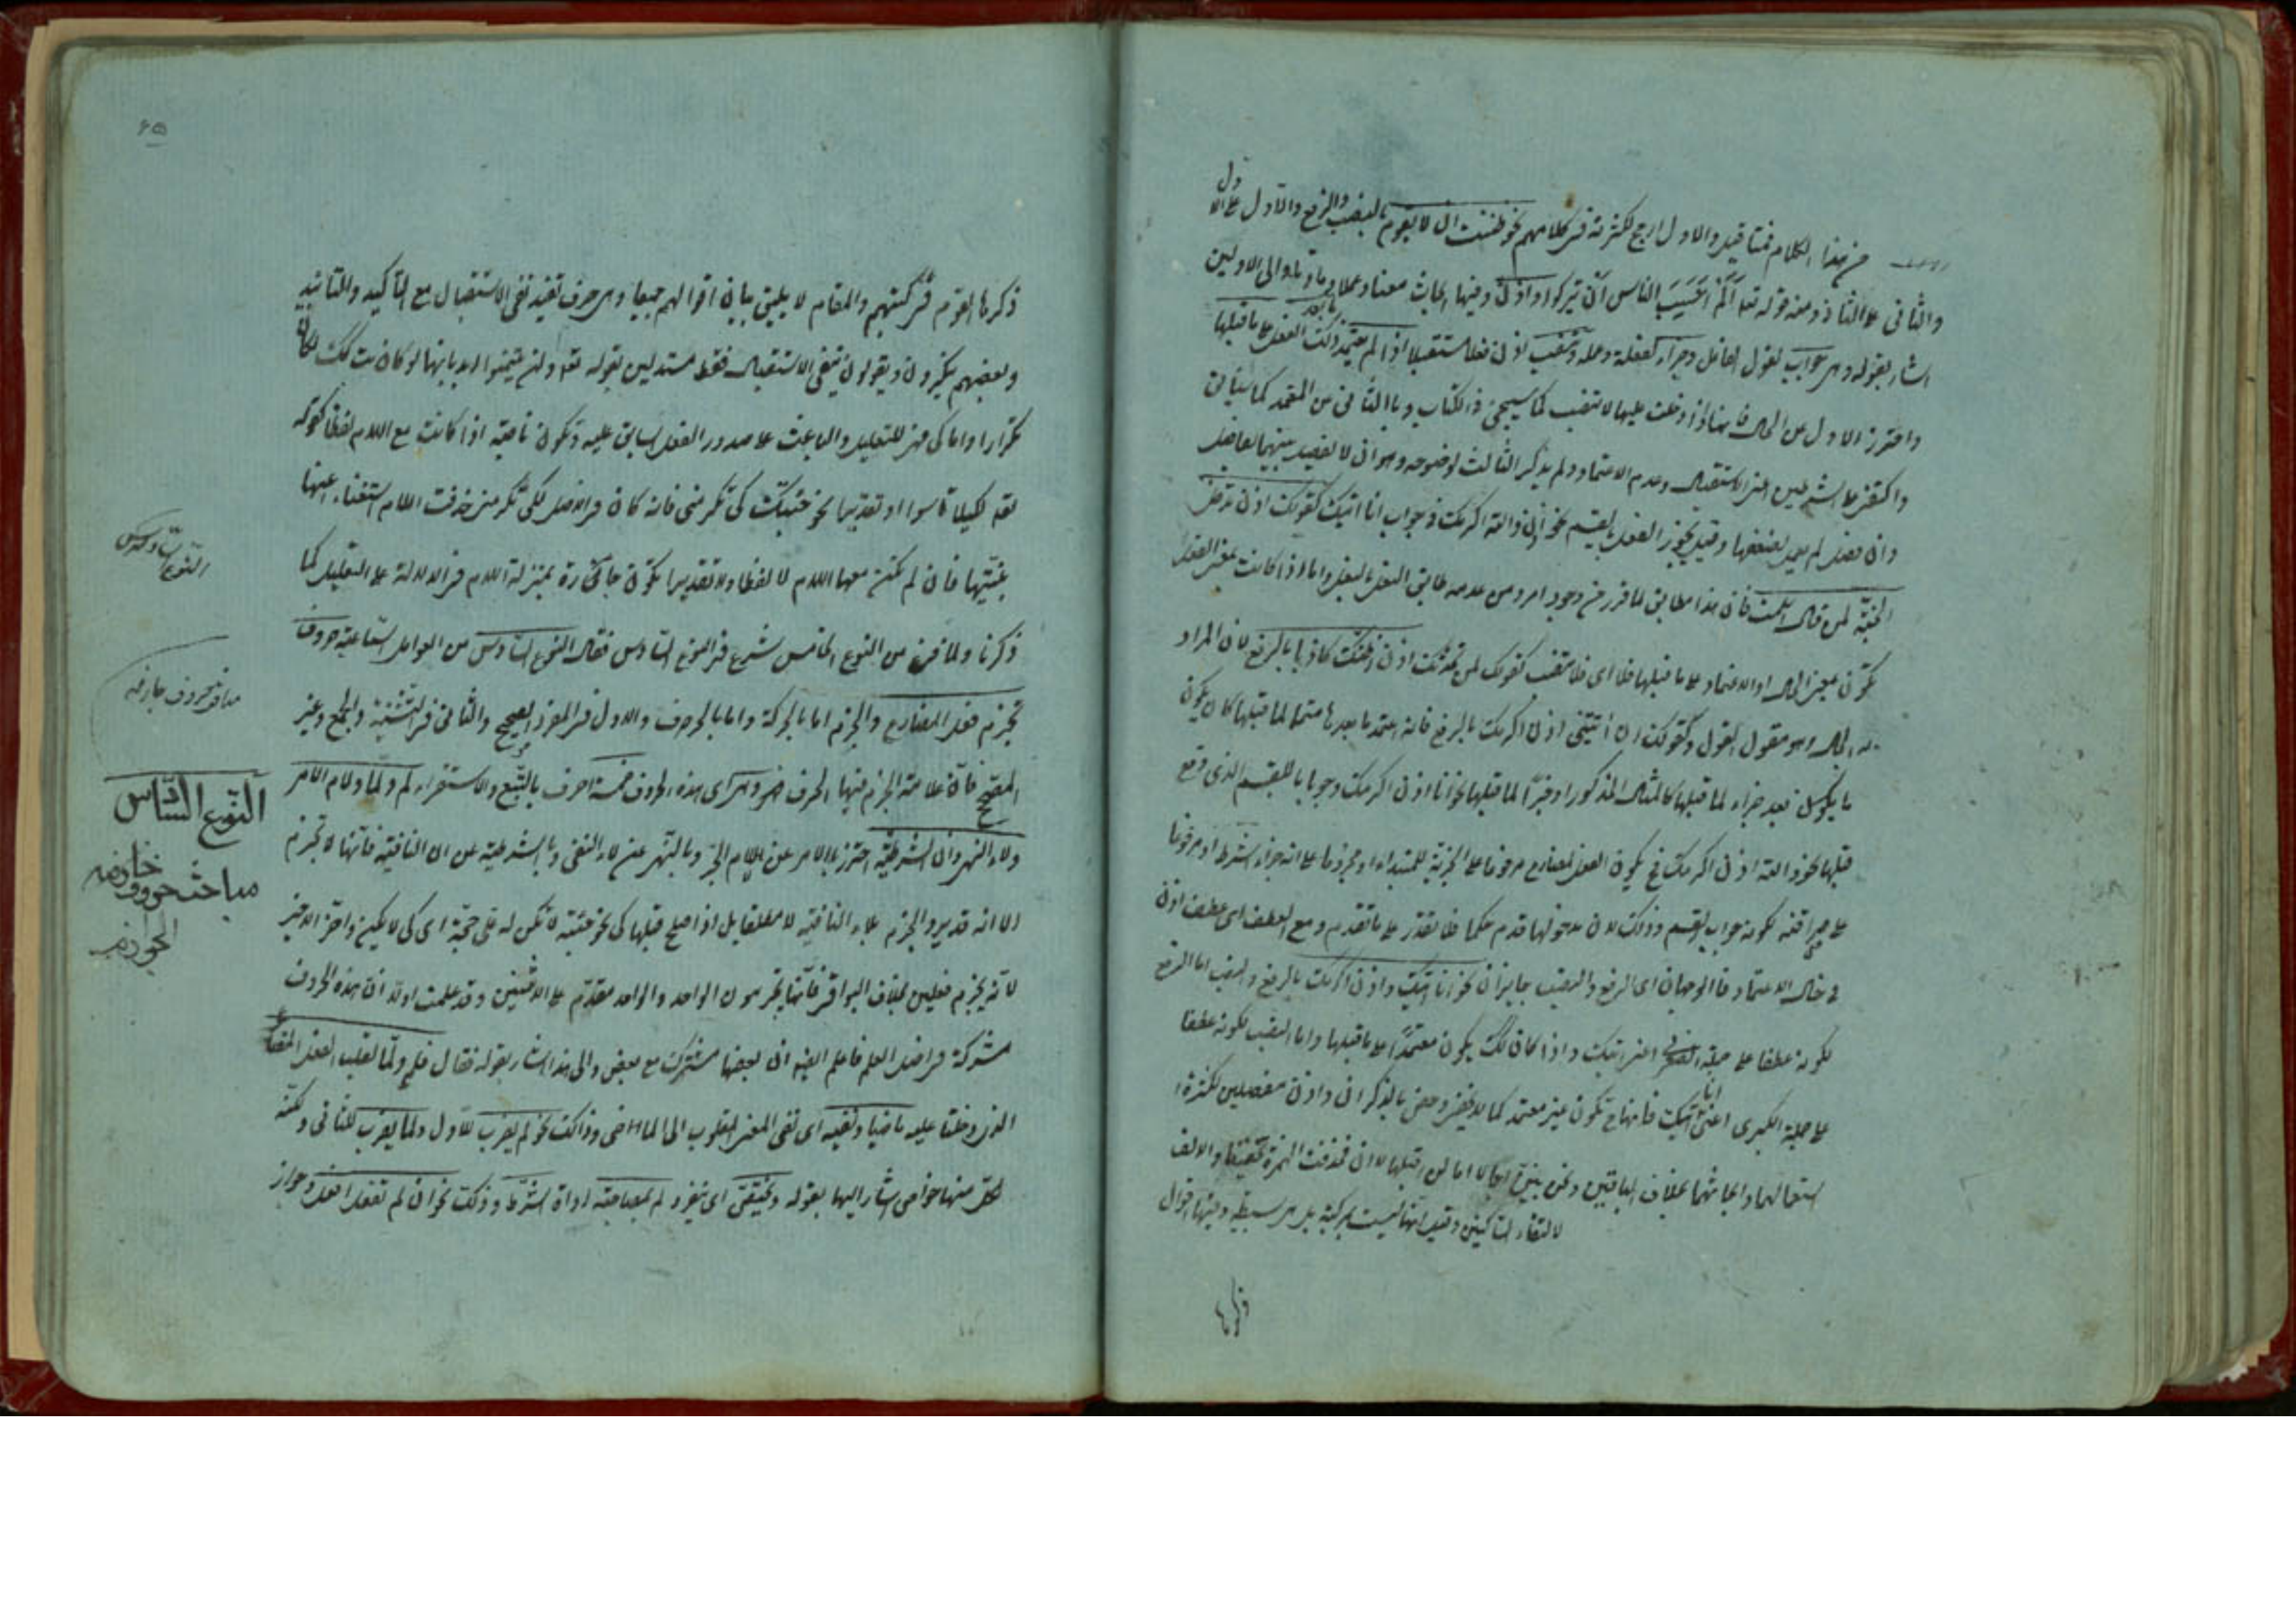 من هذا الكلام فمتا قيل والاول ارجح لكثرته فى كلامهم نحو ظننت ان لا يقوم بالنصب والرفع والاول على الاول
والثانى على الثانى ومنه قوله تعا الم احسب الناس ان يتركوا واذن وفيها ابحاث معنا وعملا والى الاولين
اشار بقوله وهى جواب لقول القائل وجزاء لفعله وعمله وتنصب لو ان فعلا مستقبلا اذا لم يعتمد ذلك الفعل على ما قبلها
واحترز الاول عن الحال فانها اذا دخلت عليها لا تنصب كما سيجئ فى الكتاب وبالثانى عن المعتمد كما سيأتى
واكتفى على الشرطين اعنى الاستقبال وعدم الاعتماد ولم يذكر الثالث لوضوحه وهو ان لا يفصل بينهما بفاصل
وان فصل لم يعمل لضعفها وقيل يجوز الفصل بالقسم نحو اذن والله اكرمك فى جواب انا اتيك كقولك اذن تدخل
الجنة لمن قال اسلمت فان هذا مطابق لما قرر من وجود امر ومن عدمه طابق النعل بالنعل واما اذا كانت بمعنى الفعل
تكون بمعنى الحال او الاعتماد على ما قبلها فلا اى فلا تنصب كقولك لمن يحدثك اذن اظنك كاذبا بالرفع لان المراد
به الحال وهو مقول القول وكقولك ان أتيتنى اذن اكرمك بالرفع فانه اعتمد ما بعدها متمما لما قبلها كان يكون
ما يكون بعد جزاء لما قبلها كالمثال المذكور او خبرا لما قبلها نحو انا اذن اكرمك وجوابا للقسم الذى وقع
قبلها نحو والله اذن اكرمك فح يكون الفعل المضارع مرفوعا على الخبرية للمبتداء او مجزوما على انه جزاء الشرط او مرفوعا
لكونه جواب القسم وذلك لان مدخولها قدم حكما فلا تقدر على ما تقدم ومع العطف اى عطف اذن
فى حال الاعتماد فالوجهان اى الرفع والنصب جايزان نحو انا اتيك واذن اكرمك بالرفع والنصب اما الرفع
لكونه عطفا على جملة الصغرى اعنى اتيك واذا كان كذلك يكون معتمدا على ما قبلها واما النصب لكونه عطفا
على جملة الكبرى اعنى انا اتيك فانها ح تكون غير معتمد كما لا يخفى وخص بالذكر ان واذن مفصلين لكثرة
استعمالهما وابحاثهما بخلاف الباقين ونحن نبين اجمالا اما لن اصلها لا ان فحذفت الهمزة تخفيفا والالف
لالتقاء الساكنين وقيل انها ليست بمركبة بل هى بسيطة وفيها اقوال
ذكرها
٤٥
ذكرها القوم فى كتبهم والمقام لا يليق ببيان اقوالهم جميعا وهى حرف تفيد نفى الاستقبال مع التأكيد والتأبيد
وبعضهم ينكرون ويقولون بنفى الاستقبال فقط مستدلين بقوله تعا ولن يتمنوا ابدا بانها لو كانت كذلك لكان
تكرارا واما كى فهى للتعليل والباعث على صدور الفعل السابق عليه وتكون ناصبة اذا كانت مع اللام لفظا كقوله
تعا لكيلا تأسوا او تقديرا نحو جئتك كى تكرمنى فانه كان فى الاصل لكى تكرمنى حذفت اللام استغناء عنها
بنيتها فان لم تكن معها اللام لا لفظا ولا تقديرا تكون جارة بمنزلة اللام فى الدلالة على التعليل كما
ذكرنا ولما فرغ من النوع الخامس شرع فى النوع السادس فقال النوع السادس من العوامل السماعية حروف
تجزم فعل المضارع والجزم اما بالحركة واما بالحرف والاول فى المفرد الصحيح والثانى فى التثنية والجمع وغير
الصحيح فان علامة الجزم فيها الحرف وهى اى هذه الحروف خمسة احرف بالتتبع والاستقراء لم ولما ولام الامر
ولاء النهى وان الشرطية احترز بالامر عن اللام الجر وبالنهى عن لاء النفى وبالشرطية عن ان النافية فانها لا تجزم
الا انه قد يرد الجزم بلاء النافية لا مطلقا بل اذا صلح قبلها كى نحو جئته لا تكن له على حجة اى كى لا يكن واخر الاخير
لانه يجزم فعلين بخلاف البواقى فانها تجزمون الواحد والواحد مقدم على الاثنين وقد علمت اولا ان هذه الحروف
مشتركة فى اصل العلم فاعلم ايضا ان بعضها مشترك مع بعض والى هذا اشار بقوله فقال فلم ولما لقلب الفعل المضارع
الذى دخلتا عليه ماضيا ونفيه اى نفى المعنى المقلوب الى الماضى وذلك نحو لم يضرب للاول ولما يضرب للثانى ولكنه
لكل منها خواص اشار اليها بقوله وتختص اى ينفرد لم بمصاحبة اداة الشرط وذلك نحو ان لم تفعل افعل وجواز
النوع السادس
النوع السادس
مباحث حروف جازمه
الجوازم